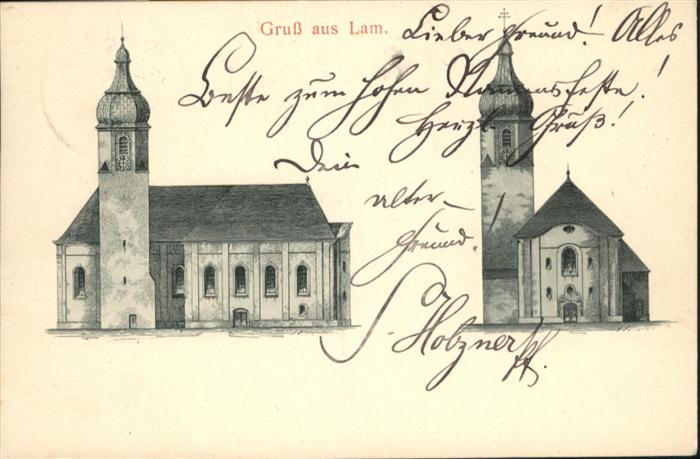 Gruß aus Lam.
Lieber Freund! Alles
Beste zum hohen Namensfeste!
Herzl. Grüß!
Dein
alter
Freund!
S. Holzner